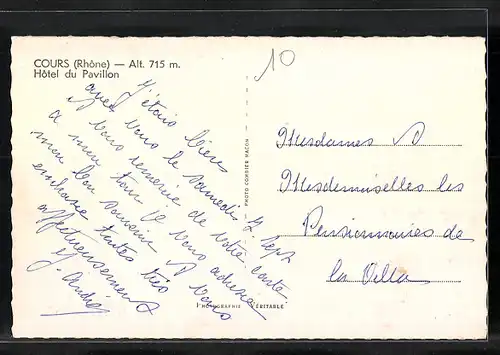 COURS (Rhône) — Alt. 715 m.
Hôtel du Pavillon
10
J'étais bien
avec vous le samedi 12 Sept
Je vous remercie de votre carte
à mon tour je vous adresse
mon bon souvenir & vous
embrasse toutes très
affectueusement
PHOTO COMBIER MACON
"PHOTOGRAPHIE VÉRITABLE
Mesdames &
Mesdemoiselles les
Pensionnaires de
la Villa